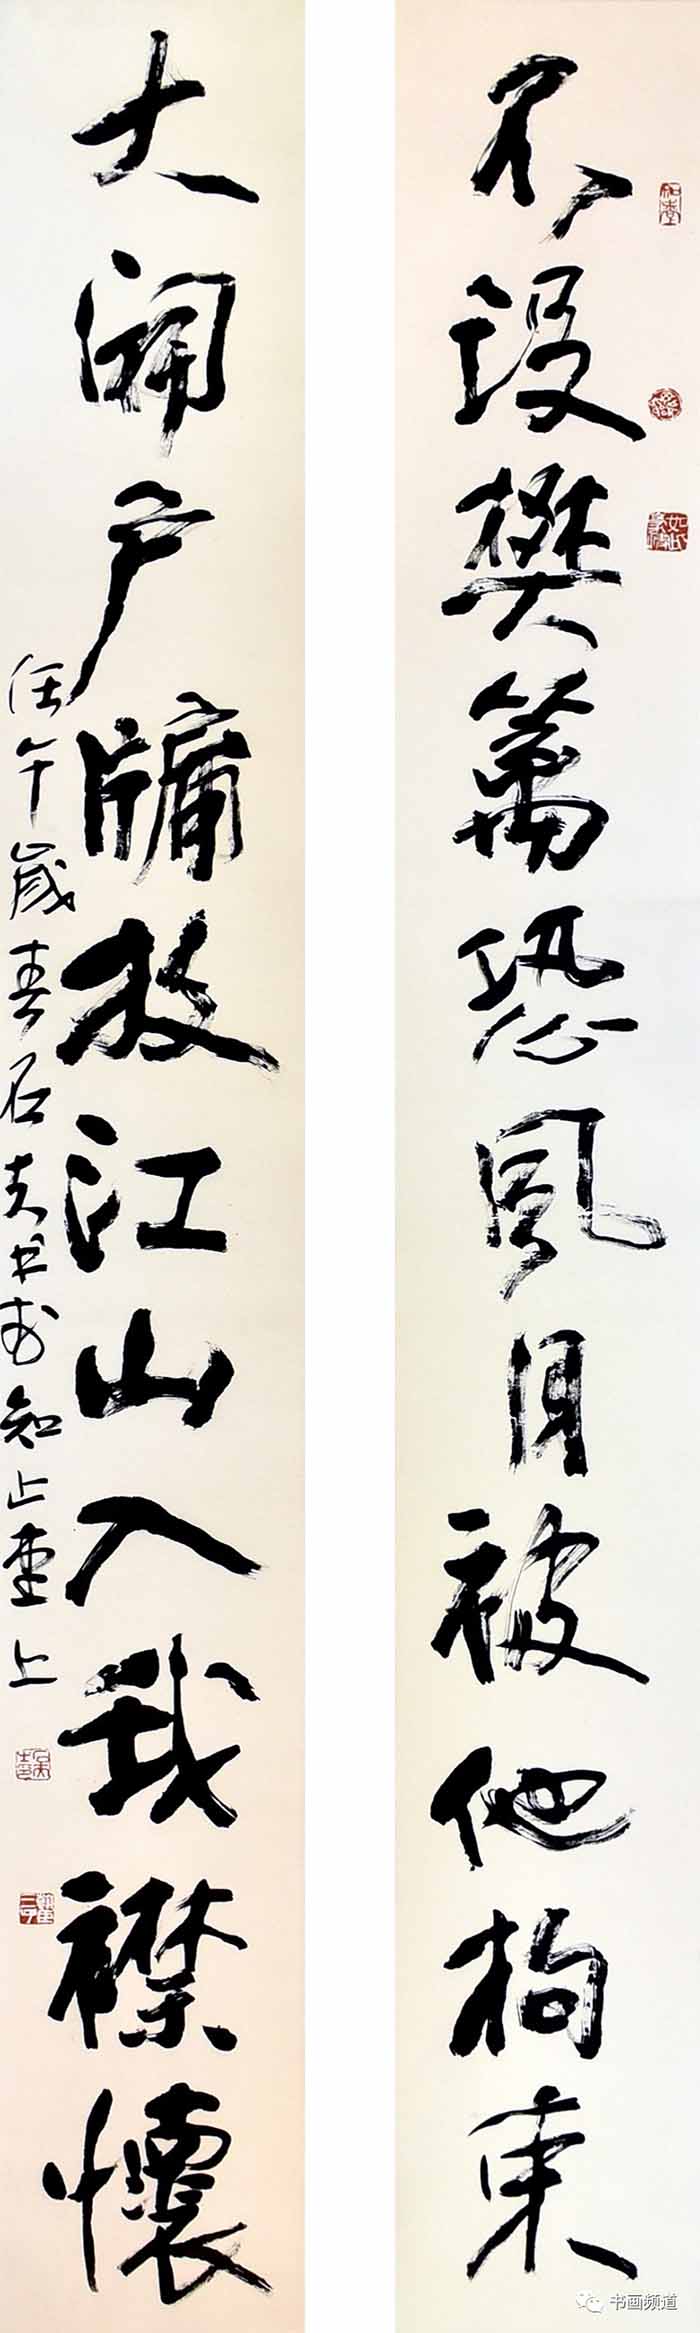 不设樊篱恐风月被他拘束
大開户牖放江山入我襟懷
壬午歲春石夫书於知止堂上
书画频道